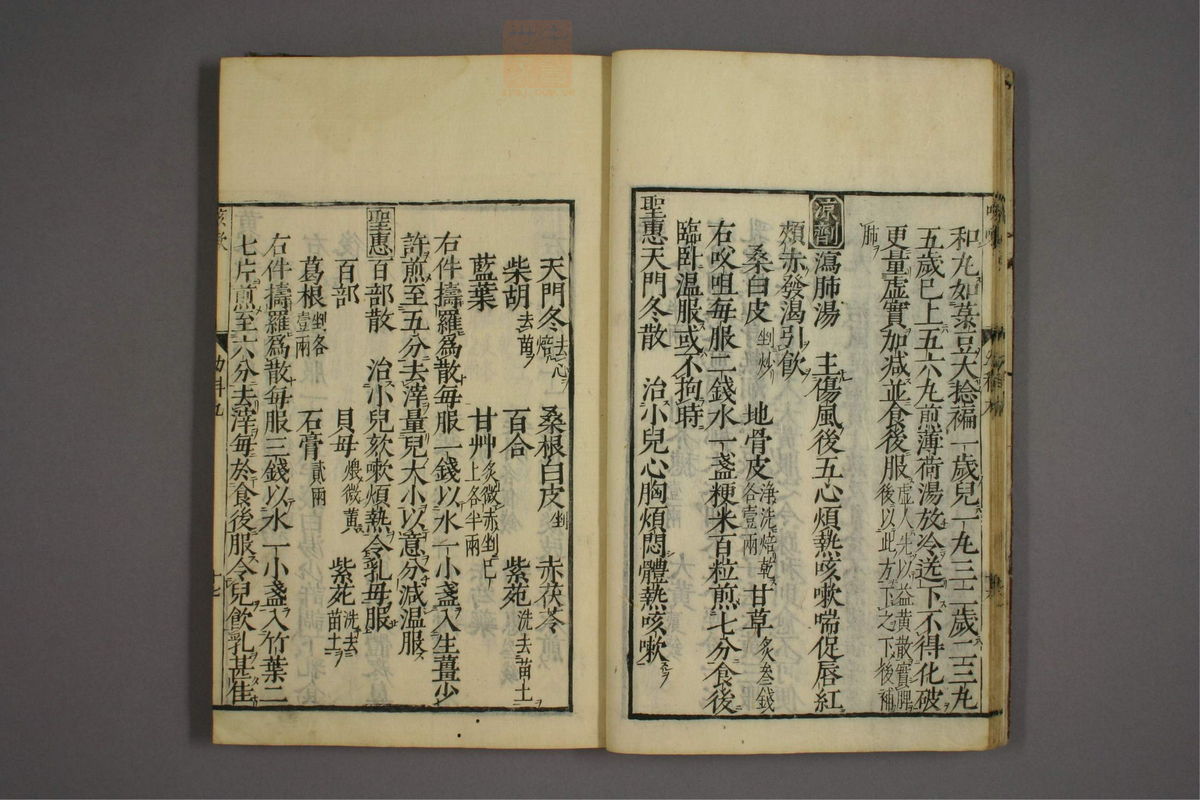 和丸如菉豆大捻褊一歲兒一丸三二歲二三丸
五歲已上五六丸煎薄荷湯放冷送下不得化破
更量虛實加減並食後服虛人先以益黃散實脾後以此方下之下後補
肺
涼劑瀉肺湯 主傷風後五心煩熱咳嗽喘促唇紅
頰赤發渴引飲
桑白皮剉炒 地骨皮淨洗焙乾各壹兩 甘草炙叁錢
右㕮咀每服二錢水一盞粳米百粒煎七分食後
臨臥溫服或不拘時
聖惠天門冬散 治小兒心胸煩悶體熱咳嗽
天門冬去心焙 桑根白皮剉 赤茯苓
柴胡去蘆 百合 紫菀洗去苗土
藍葉 甘艸炙微赤剉已上各半兩
右件擣羅為散每服一錢以水一小盞入生薑少
許煎至五分去滓量兒大小以意分減溫服
聖惠百部散 治小兒欬嗽煩熱令乳母服
百部 貝母煨微黃 紫菀洗去苗土
葛根剉各壹兩 石膏貳兩
右件擣羅為散每服三錢以水一小盞入竹葉二
七片煎至六分去滓每於食後服令兒飲乳甚佳
幼科九